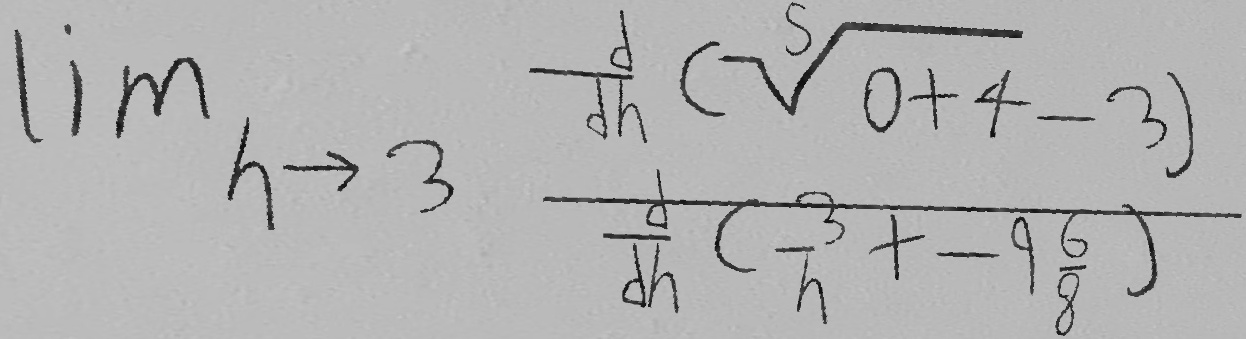 lim_{h→3} \frac{\frac{d}{dh}(\sqrt[5]{0+4}-3)}{\frac{d}{dh}(\frac{3}{h}+-9\frac{6}{8})}